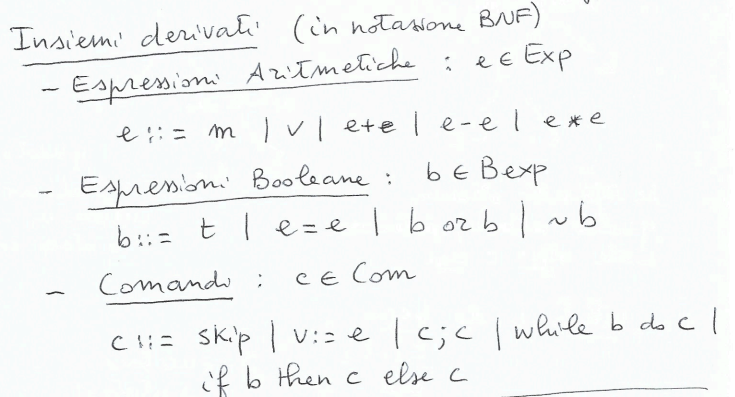 Insiemi derivati (in notazione BNF)
- Espressioni Aritmetiche : e ∈ Exp
e ::= m | v | e+e | e-e | e*e
- Espressioni Booleane : b ∈ Bexp
b ::= t | e=e | b or b | ~b
- Comando : c ∈ Com
c ::= skip | v:=e | c;c | while b do c |
if b then c else c